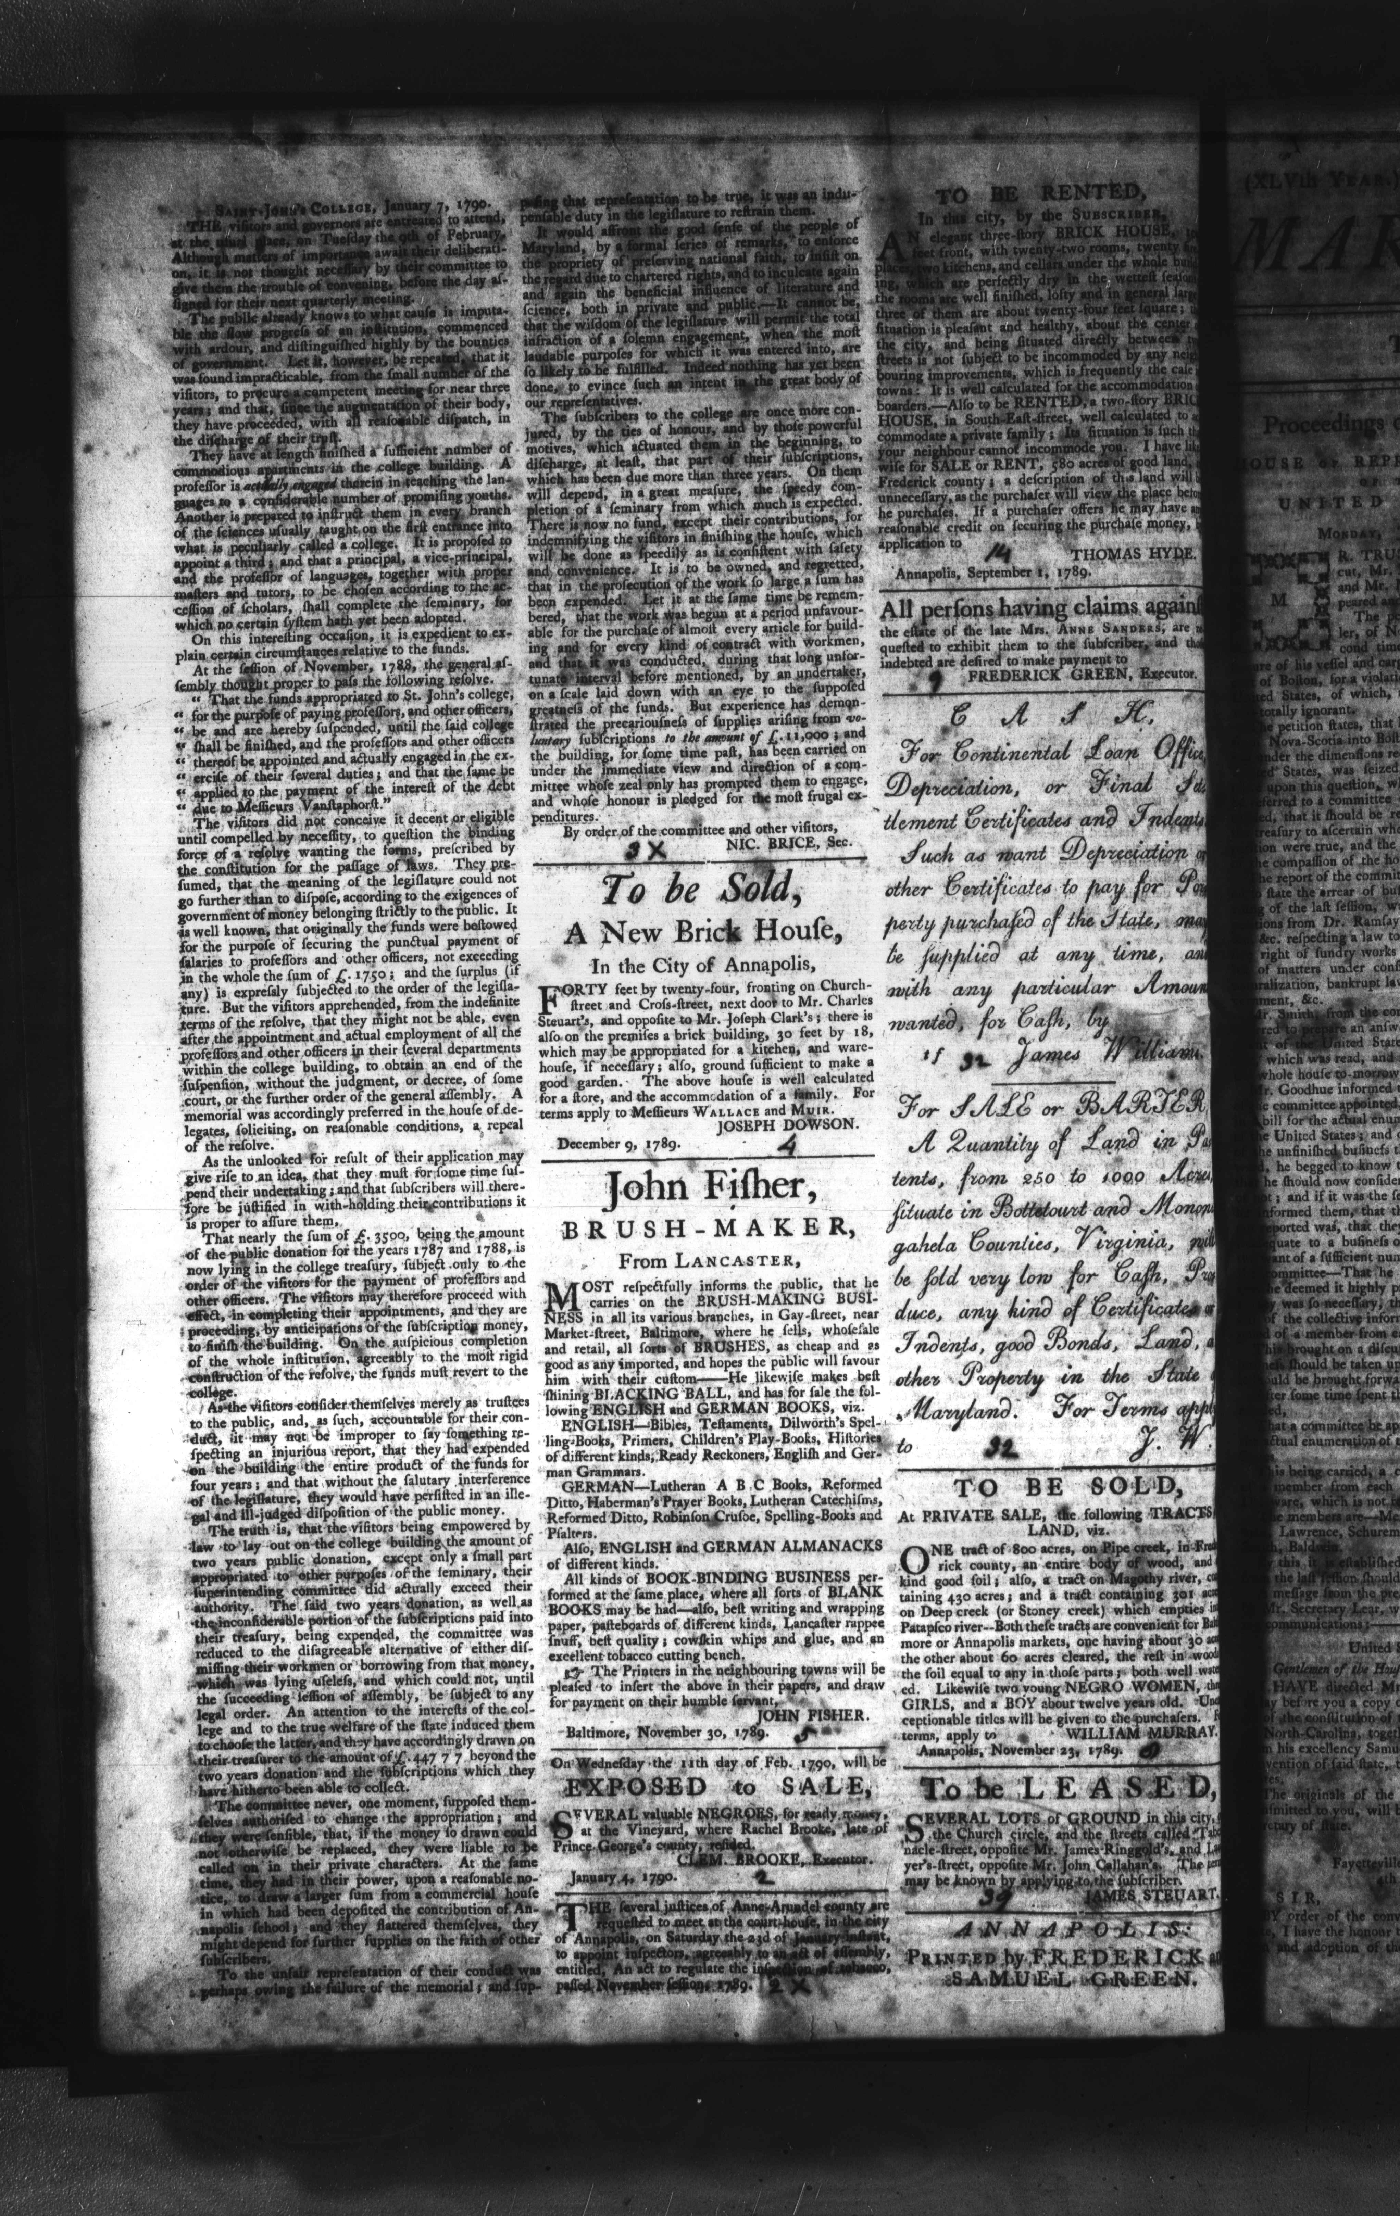 SAINT-JOHN'S COLLEGE, January 7, 1790.
THE visitors and governors are entreated to attend,
at the usual place, on Tuesday the 9th of February.
Although matters of importance await their deliberati-
on, it is not thought necessary by their committee to
give them the trouble of convening, before the day as-
signed for their next quarterly meeting.
The public already knows to what cause is imputa-
ble the slow progress of an institution, commenced
with ardour, and distinguished highly by the bounties
of government. Let it, however, be repeated, that it
was found impracticable, from the small number of the
visitors, to procure a competent meeting for near three
years; and that, since the augmentation of their body,
they have proceeded, with all reasonable dispatch, in
the discharge of their trust.
They have at length finished a sufficient number of
commodious apartments in the college building. A
professor is actually engaged therein in teaching the lan-
guages to a considerable number of promising youths.
Another is prepared to instruct them in every branch
of the sciences usually taught on the first entrance into
what is peculiarly called a college. It is proposed to
appoint a third; and that a principal, a vice-principal,
and the professor of languages, together with proper
masters and tutors, to be chosen according to the ac-
cession of scholars, shall complete the seminary, for
which no certain system hath yet been adopted.
On this interesting occasion, it is expedient to ex-
plain certain circumstances relative to the funds.
At the session of November, 1788, the general as-
sembly thought proper to pass the following resolve.
" That the funds appropriated to St. John's college,
" for the purpose of paying professors, and other officers,
" be and are hereby suspended, until the said college
" shall be finished, and the professors and other officers
" thereof be appointed and actually engaged in the ex-
" ercise of their several duties; and that the same be
" applied to the payment of the interest of the debt
" due to Messieurs Vanstaphorst."
The visitors did not conceive it decent or eligible
until compelled by necessity, to question the binding
force of a resolve wanting the forms, prescribed by
the constitution for the passage of laws. They pre-
sumed, that the meaning of the legislature could not
go further than to dispose, according to the exigences of
government of money belonging strictly to the public. It
is well known, that originally the funds were bestowed
for the purpose of securing the punctual payment of
salaries to professors and other officers, not exceeding
in the whole the sum of £. 1750; and the surplus (if
any) is expressly subjected to the order of the legisla-
ture. But the visitors apprehended, from the indefinite
terms of the resolve, that they might not be able, even
after the appointment and actual employment of all the
professors and other officers in their several departments
within the college building, to obtain an end of the
suspension, without the judgment, or decree, of some
court, or the further order of the general assembly. A
memorial was accordingly preferred in the house of de-
legates, soliciting, on reasonable conditions, a repeal
of the resolve.
As the unlooked for result of their application may
give rise to an idea, that they must for some time sus-
pend their undertaking; and that subscribers will there-
fore be justified in with-holding their contributions it
is proper to assure them,
That nearly the sum of £. 3500, being the amount
of the public donation for the years 1787 and 1788, is
now lying in the college treasury, subject only to the
order of the visitors for the payment of professors and
other officers. The visitors may therefore proceed with
effect, in completing their appointments, and they are
proceeding, by anticipations of the subscription money,
to finish the building. On the auspicious completion
of the whole institution, agreeably to the most rigid
construction of the resolve, the funds must revert to the
college.
As the visitors consider themselves merely as trustees
to the public, and, as such, accountable for their con-
duct, it may not be improper to say something re-
specting an injurious report, that they had expended
on the building the entire product of the funds for
four years; and that without the salutary interference
of the legislature, they would have persisted in an ille-
gal and ill-judged disposition of the public money.
The truth is, that the visitors being empowered by
law to lay out on the college building the amount of
two years public donation, except only a small part
appropriated to other purposes of the seminary, their
superintending committee did actually exceed their
authority. The said two years donation, as well as
the inconsiderable portion of the subscriptions paid into
their treasury, being expended, the committee was
reduced to the disagreeable alternative of either dis-
missing their workmen or borrowing from that money,
which was lying useless, and which could not, until
the succeeding session of assembly, be subject to any
legal order. An attention to the interests of the col-
lege and to the true welfare of the state induced them
to choose the latter, and they have accordingly drawn on
their treasurer to the amount of £. 447 7 7 beyond the
two years donation and the subscriptions which they
have hitherto been able to collect.
The committee never, one moment, supposed them-
selves authorised to change the appropriation; and
they were sensible, that, if the money so drawn could
not otherwise be replaced, they were liable to be
called on in their private characters. At the same
time, they had in their power, upon a reasonable no-
tice, to draw a larger sum from a commercial house
in which had been deposited the contribution of An-
napolis school; and they flattered themselves, they
might depend for further supplies on the faith of other
subscribers.
To the unfair representation of their conduct was
perhaps owing the failure of the memorial; and sup-
posing that representation to be true, it was an indis-
pensable duty in the legislature to restrain them.
It would affront the good sense of the people of
Maryland, by a formal series of remarks, to enforce
the propriety of preserving national faith, to insist on
the regard due to chartered rights, and to inculcate again
and again the beneficial influence of literature and
science, both in private and public.—It cannot be,
that the wisdom of the legislature will permit the total
infraction of a solemn engagement, when the most
laudable purposes for which it was entered into, are
so likely to be fulfilled. Indeed nothing has yet been
done, to evince such an intent in the great body of
our representatives.
The subscribers to the college are once more con-
jured, by the ties of honour, and by those powerful
motives, which actuated them in the beginning, to
discharge, at least, that part of their subscriptions,
which has been due more than three years. On them
will depend, in a great measure, the speedy com-
pletion of a seminary from which much is expected.
There is now no fund, except their contributions, for
indemnifying the visitors in finishing the house, which
will be done as speedily as is consistent with safety
and convenience. It is to be owned, and regretted,
that in the prosecution of the work so large a sum has
been expended. Let it at the same time be remem-
bered, that the work was begun at a period unfavour-
able for the purchase of almost every article for build-
ing and for every kind of contract with workmen,
and that it was conducted, during that long unfor-
tunate interval before mentioned, by an undertaker,
on a scale laid down with an eye to the supposed
greatness of the funds. But experience has demon-
strated the precariousness of supplies arising from vo-
luntary subscriptions to the amount of £. 11,000; and
the building, for some time past, has been carried on
under the immediate view and direction of a com-
mittee whose zeal only has prompted them to engage,
and whose honour is pledged for the most frugal ex-
penditures.
By order of the committee and other visitors,
3X NIC. BRICE, Sec.
To be Sold,
A New Brick House,
In the City of Annapolis,
FORTY feet by twenty-four, fronting on Church-
street and Cross-street, next door to Mr. Charles
Steuart's, and opposite to Mr. Joseph Clark's; there is
also on the premises a brick building, 30 feet by 18,
which may be appropriated for a kitchen, and ware-
house, if necessary; also, ground sufficient to make a
good garden. The above house is well calculated
for a store, and the accommodation of a family. For
terms apply to Messieurs WALLACE and MUIR.
JOSEPH DOWSON.
December 9, 1789. 4
John Fisher,
BRUSH-MAKER,
From LANCASTER,
MOST respectfully informs the public, that he
carries on the BRUSH-MAKING BUSI-
NESS in all its various branches, in Gay-street, near
Market-street, Baltimore, where he sells, wholesale
and retail, all sorts of BRUSHES, as cheap and as
good as any imported, and hopes the public will favour
him with their custom——He likewise makes best
shining BLACKING BALL, and has for sale the fol-
lowing ENGLISH and GERMAN BOOKS, viz.
ENGLISH—Bibles, Testaments, Dilworth's Spel-
ling-Books, Primers, Children's Play-Books, Histories
of different kinds, Ready Reckoners, English and Ger-
man Grammars.
GERMAN—Lutheran A B C Books, Reformed
Ditto, Haberman's Prayer Books, Lutheran Catechisms,
Reformed Ditto, Robinson Crusoe, Spelling-Books and
Psalters.
Also, ENGLISH and GERMAN ALMANACKS
of different kinds.
All kinds of BOOK-BINDING BUSINESS per-
formed at the same place, where all sorts of BLANK
BOOKS may be had—also, best writing and wrapping
paper, pasteboards of different kinds, Lancaster rappee
snuff, best quality; cowskin whips and glue, and an
excellent tobacco cutting bench.
☞ The Printers in the neighbouring towns will be
pleased to insert the above in their papers, and draw
for payment on their humble servant,
JOHN FISHER.
Baltimore, November 30, 1789. 5
On Wednesday the 11th day of Feb. 1790, will be
EXPOSED to SALE,
SEVERAL valuable NEGROES, for ready money,
at the Vineyard, where Rachel Brooke, late of
Prince-George's county, resided.
CLEM. BROOKE, Executor.
January 4, 1790. 2
THE several justices of Anne-Arundel county are
requested to meet at the court-house, in the city
of Annapolis, on Saturday the 23d of January instant,
to appoint inspectors, agreeably to an act of assembly,
entitled, An act to regulate the inspection of tobacco,
passed November session, 1789. 2X
TO BE RENTED,
In this city, by the SUBSCRIBER,
AN elegant three-story BRICK HOUSE,
feet front, with twenty-two rooms, twenty
places, two kitchens, and cellars under the whole
ing, which are perfectly dry in the wettest
the rooms are well finished, lofty and in general
three of them are about twenty-four feet square;
situation is pleasant and healthy, about the center
the city, and being situated directly between
streets is not subject to be incommoded by any
bouring improvements, which is frequently the
towns: It is well calculated for the accommodation
boarders.—Also to be RENTED, a two-story
HOUSE, in South-East-street, well calculated to
commodate a private family; Its situation is such
your neighbour cannot incommode you. I have
wise for SALE or RENT, 580 acres of good land,
Frederick county; a description of this land will
unnecessary, as the purchaser will view the place
he purchases. If a purchaser offers he may have
reasonable credit on securing the purchase money,
application to 14 THOMAS HYDE.
Annapolis, September 1, 1789.
All persons having claims against
the estate of the late Mrs. ANNE SANDERS, are
quested to exhibit them to the subscriber, and
indebted are desired to make payment to
9 FREDERICK GREEN, Executor.
C A S H,
For Continental Loan Office
Depreciation, or Final
tlement Certificates and Indents
Such as want Depreciation
other Certificates to pay for
perty purchased of the State,
be supplied at any time,
with any particular
wanted, for Cash, by
tf 32 James Williams.
For SALE or BARTER
A Quantity of Land in
tents, from 250 to 1000 Acres,
situate in Bottetourt and
gahela Counties, Virginia,
be sold very low for Cash,
duce, any kind of Certificates
Indents, good Bonds, Land,
other Property in the State
Maryland. For Terms
to 32 J. W.
TO BE SOLD,
At PRIVATE SALE, the following TRACTS
LAND, viz.
ONE tract of 800 acres, on Pipe creek, in
rick county, an entire body of wood, and
kind good soil; also, a tract on Magothy river,
taining 430 acres; and a tract containing 301
on Deep creek (or Stoney creek) which empties
Patapsco river—Both these tracts are convenient for
more or Annapolis markets, one having about 30
the other about 60 acres cleared, the rest in
the soil equal to any in those parts; both well
ed. Likewise two young NEGRO WOMEN,
GIRLS, and a BOY about twelve years old.
ceptionable titles will be given to the purchasers.
terms, apply to WILLIAM MURRAY.
Annapolis, November 23, 1789.
To be LEASED,
SEVERAL LOTS of GROUND in this city,
the Church circle, and the streets called
nacle-street, opposite Mr. James Ringgold's, and
yer's-street, opposite Mr. John Callahan's. The
may be known by applying to the subscriber.
39 JAMES STEUART.
ANNAPOLIS:
PRINTED by FREDERICK
SAMUEL GREEN.
(XLVth YEAR.)
MAR
Proceedings
HOUSE OF
UNITED